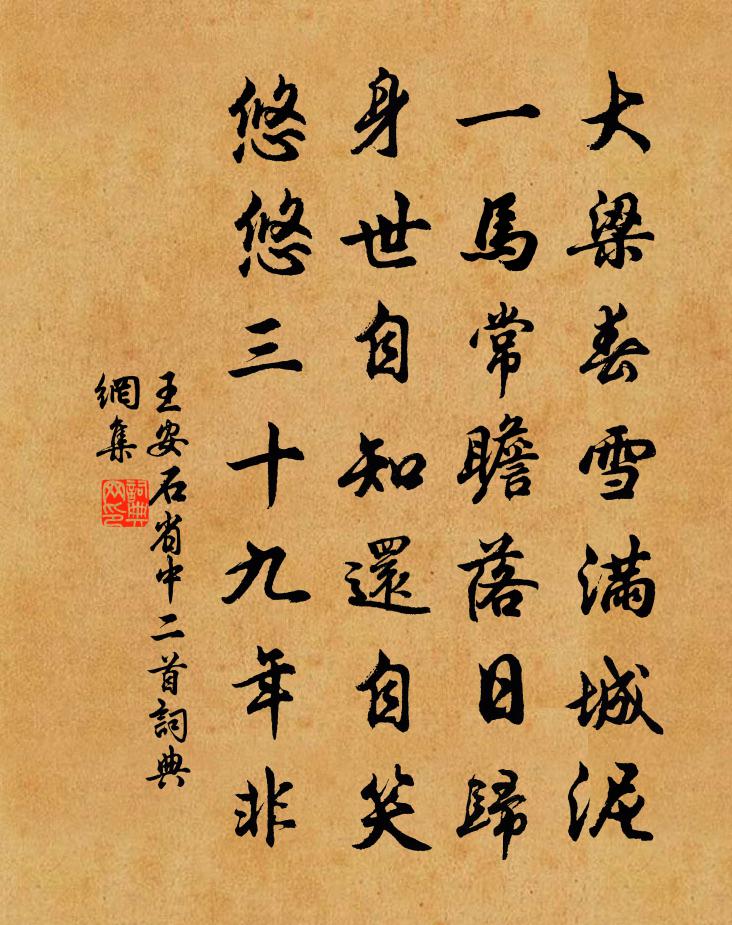 大梁春雪滿城泥
一馬常瞻落日歸
身世自知還自笑
悠悠三十九年非
王安石省中二首詞典
網集
詞典
网印